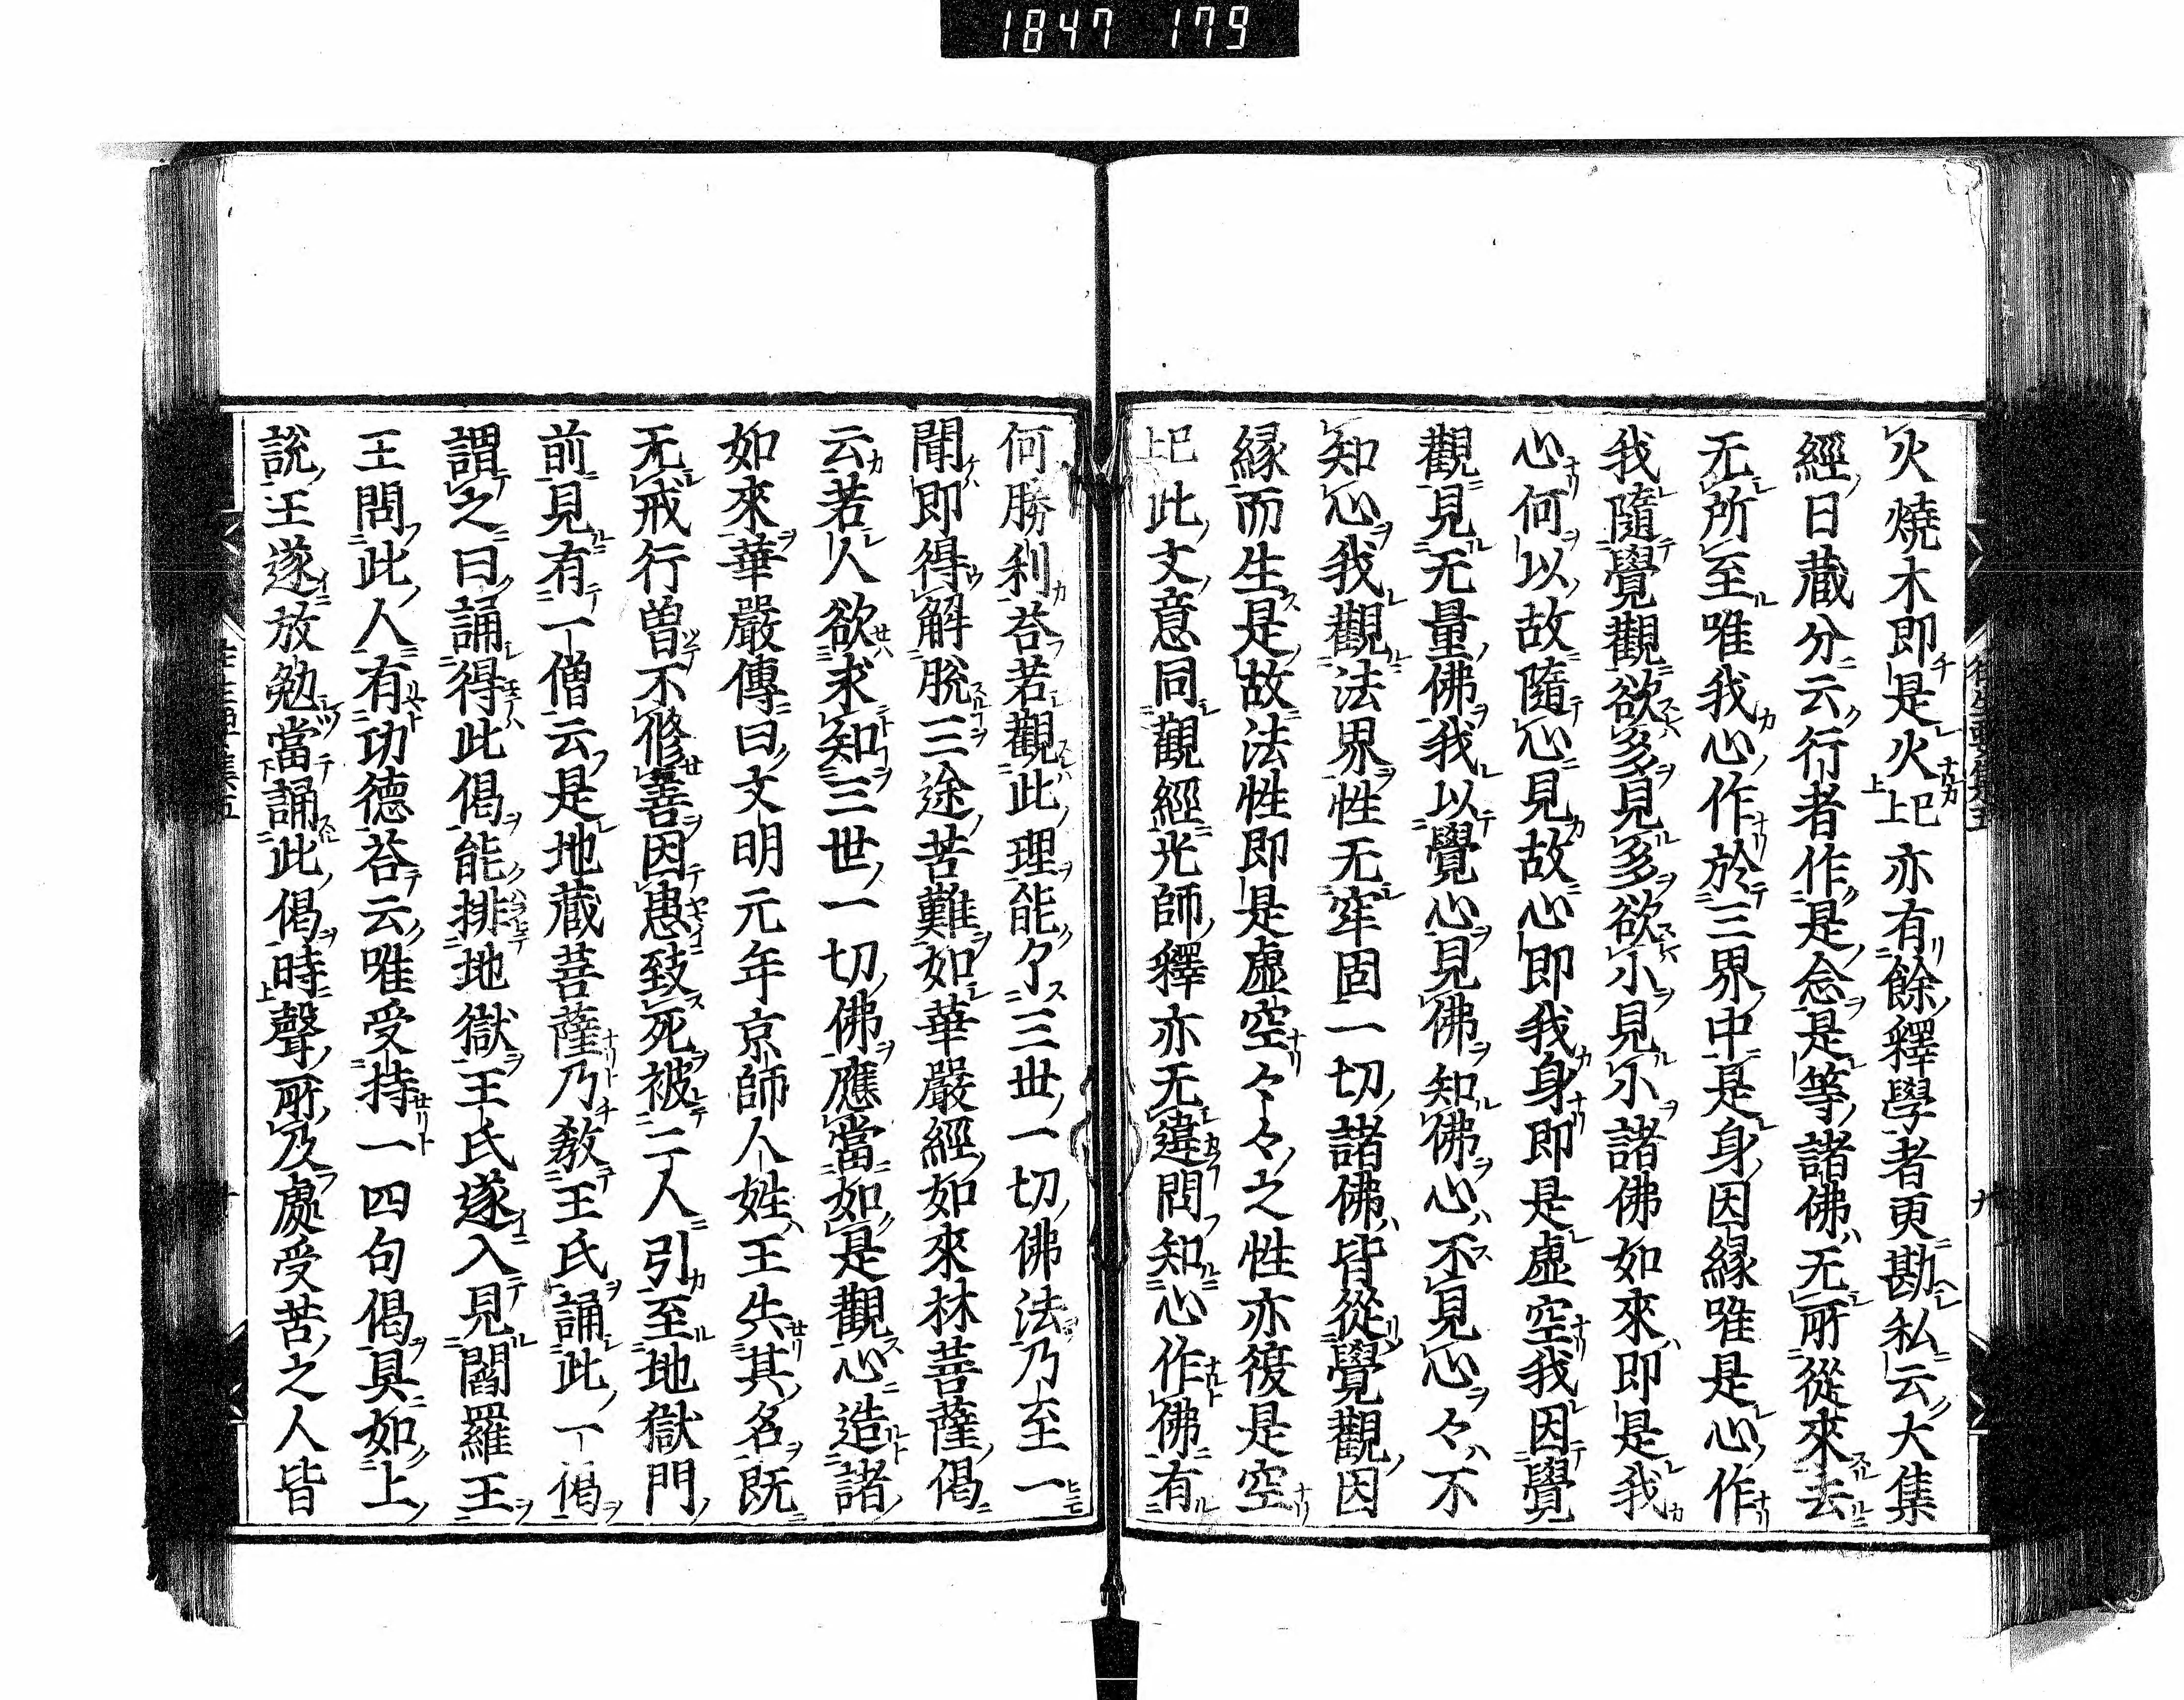 1847 179
火燒木即是火已上亦有餘釋學者更勘私云大集
經日藏分云行者作是念是等諸佛无所從來去
无所至唯我心作於三界中是身因緣唯是心作
我隨覺觀欲多見多欲小見小諸佛如來即是我
心何以故隨心見故心即我身即是虛空我因覺
觀見无量佛我以覺心見佛知佛心不見心々不
知心我觀法界性无牢固一切諸佛皆從覺觀因
緣而生是故法性即是虛空々々之性亦復是空
已上此文意同觀經光師釋亦无違問知心作佛有
何勝利荅若觀此理能了三世一切佛法乃至一
聞即得解脫三途苦難如華嚴經如來林菩薩偈
云若人欲求知三世一切佛應當如是觀心造諸
如來華嚴傳曰文明元年京師人姓王失其名既
无戒行曾不修善因患致死被二人引至地獄門
前見有一僧云是地藏菩薩乃教王氏誦此一偈
謂之曰誦得此偈能排地獄王氏遂入見閻羅王
王問此人有功德荅云唯受持一四句偈具如上
說王遂放勉當誦此偈時聲所及處受苦之人皆